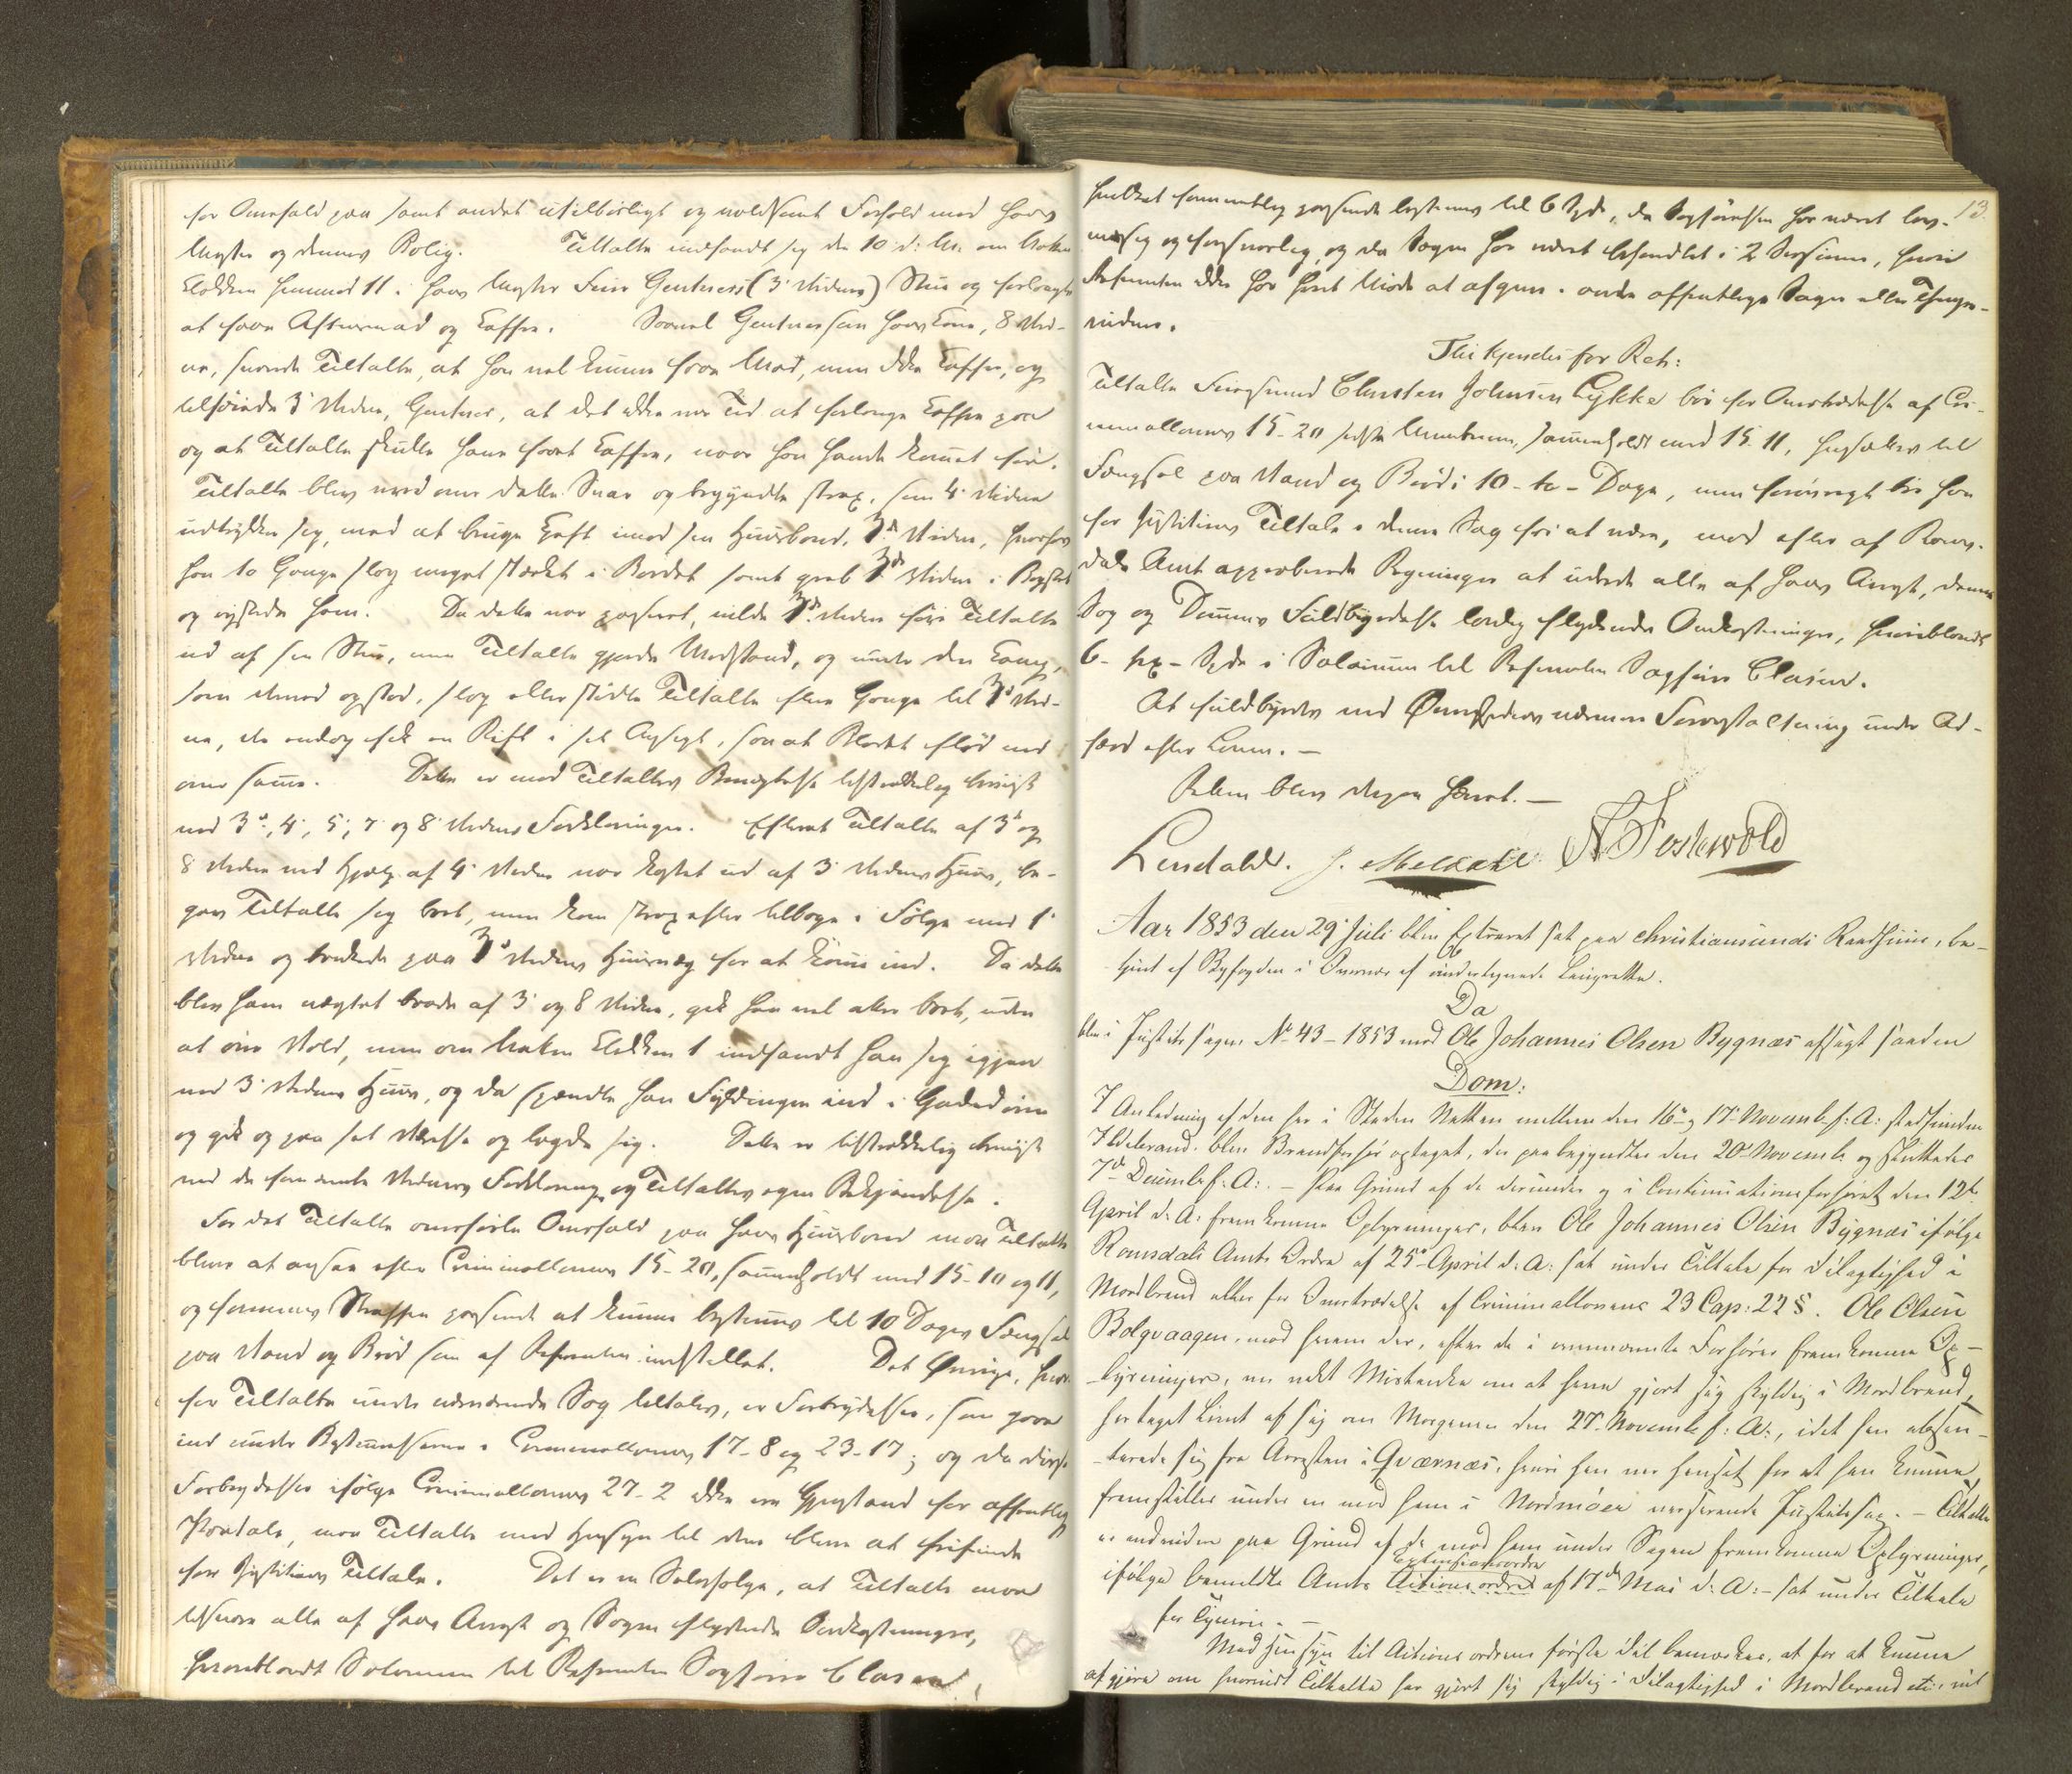 for Overfald paa samt andet utilbørligt og voldsomt Forhold mod hans
Mester og dennes Bolig. Tiltalte indfandt sig den 10 d: M. om
Klokken henimod 11 i hans Mester Feier Gentners (3' Vidnes) Stue og forlangte
at faae Aftensmad og Kaffe. Saavel Gentner som hans Kone, 8 Vid-
ne, svarede Tiltalte, at han vel kunde faae Mad, men ikke Kaffe, og
tilføiede 3' Vidne, Gentner, at det ikke var Tid at forlange Kaffe paa
og at Tiltalte skulde have faaet Kaffe, naar han havde kommet før.
Tiltalte blev vred over dette Svar og begyndte strax, som 4' Vidne
udtrykker sig, med at bruge Kjæft imod sin Huusbond, 3d Vidne, hvorhos
han to Gange slog meget stærkt i Bordet samt greb 3d Vidne i Brystet
og rystede ham. Da dette var passeret, vilde 3d Vidne føre Tiltalte
ud af sin Stue, men Tiltalte gjorde Modstand, og under den Kamp,
som derved opstod, slog eller stødte Tiltalte flere Gange til 3d Vid-
ne, der endog fik en Rift i sit Ansigt, saa at Blodet flød ned
over samme. Dette er mod Tiltaltes Benægtelse tilstrækkelig beviist
ved 3d, 4', 5', 7' og 8' Vidners Forklaringer. Efterat Tiltalte af 3d og
8 Vidne ved Hjælp af 4' Vidne var kastet ud af 3' Vidnes Huus, be-
gav Tiltalte sig bort, men kom strax efter tilbage i Følge med 1'
Vidne og bankede paa 3d Vidnes Huusvæg for at komme ind. Da dette
blev ham nægtet baade af 3' og 8 Vidne, gik han vel atter bort, uden
at øve Vold, men om Natten Klokken 1 indfandt han sig igjen
ved 3' Vidnes Huus, og da spændte han Fyldingen ind i Gadedøren
og gik op paa sit Værelse og lagde sig. Dette er tilstrækkelig beviist
ved de fornævnte Vidners Forklaring og Tiltaltes egen Bekjendelse.
For det Tiltalte overførte Overfald paa hans Huusbond maa Tiltalte
blive at ansee efter Criminallovens 15-20, sammenholdt med 15-10 og 11,
og formenes Straffen passende at kunne bestemmes til 10 Dages Fængsel
paa Vand og Brød som af Defensor indstillet. Det Øvrige, hvor-
for Tiltalte under nærværende Sag tiltales, er Forbrydelser, som gaae
ind under Bestemmelserne i Criminallovens 17-8 og 23-17; og da disse
Forbrydelser ifølge Criminallovens 27-2 ikke ere Gjenstand for offentlig
Paatale, maa Tiltalte med Hensyn til dem blive at frifinde
for Justitiens Tiltale. Det er en Selvfølge, at Tiltalte maa
tilsvare alle af hans Arrest og Sagen flydende Omkostninger,
hvoriblandt Salarium til Defensor Sagfører Clasen,
13.
hvilket formeentlig passende bestemmes til 6 Spd, da Sagførelsen har været lov-
mæssig og forsvarlig, og da Sagen har været behandlet i 2 Sessioner, hvori
Defensor ikke har havt Møde at afgive i andre offentlige Sager eller
Thi kjendes for Ret:
Tiltalte Feiersvend Christen Johnsen Lykke bør for Overtrædelse af Cri-
minallovens 15-20 sidste Membrum, sammenholdt med 15-11, hensættes til
Fængsel paa Vand og Brød i 10 - ti - Dage, men forøvrigt bør han
for Justitiens Tiltale i denne Sag fri at være, mod efter af Roms-
dals Amt approberede Regninger at udrede alle af hans Arrest, denne
Sag og Dommens Fuldbyrdelse lovlig flydende Omkostninger, hvoriblandt
6 - sex - Spd i Salarium til Defensor Sagfører Clasen.
At fuldbyrdes ved Øvrighedens nærmere Foranstaltning under Ad-
færd efter Loven. —
Retten blev derpaa hævet. —
Lindahl. J. Meldahl N. Fostervold
Aar 1853 den 29' Juli blev Extraret sat paa Christiansunds Raadhuus, be-
tjent af Byfogden i Overvær af undertegnede Laugrette.
Da
blev i Justitssagen No 43 - 1853 mod Ole Johannes Olsen Bygnæs afsagt saaden
Dom:
I Anledning af den her i Staden Natten mellem den 16de og 17de Novembr f: A: stedfundne
Ildebrand blev Brandforhør optaget, der paabegyndtes den 20d Novembr og sluttedes
7de Decembr f: A:. – Paa Grund af de derunder og i Continuationsforhøret den 12te
April d: A: fremkomne Oplysninger, blev Ole Johannes Olsen Bygnæs ifølge
Romsdals Amts Ordre af 25de April d: A: sat under Tiltale for Deelagtighed i
Mordbrand eller for Overtrædelse af Criminallovens 23 Cap: 22 §. Ole Olsen
Bolgvaagen, mod hvem der, efter de i ommeldte Forhører fremkomne Op-
lysninger, var vakt Mistanke om at have gjort sig skyldig i Mordbrand,
har taget Livet af sig om Morgenen den 27de Novembr f: A:, idet han absen-
terede sig fra Arresten i Qværnæs, hvori han var hensat for at han kunde
fremstilles under en mod ham i Nordmøer verserende Justitssag. – Tiltalte
er endvidere paa Grund af de mod ham under Sagen fremkomne Oplysninger,
Extensionsordre
ifølge bemeldte Amts Actionsordre af 17de Mai d: A: – sat under Tiltale
for Tyverie. –
Med Hensyn til Actionsordrens første Deel bemærkes, at for at kunne
afgjøre om hvorvidt Tiltalte har gjort sig skyldig i Deelagtighed i Mordbrand etc. vil